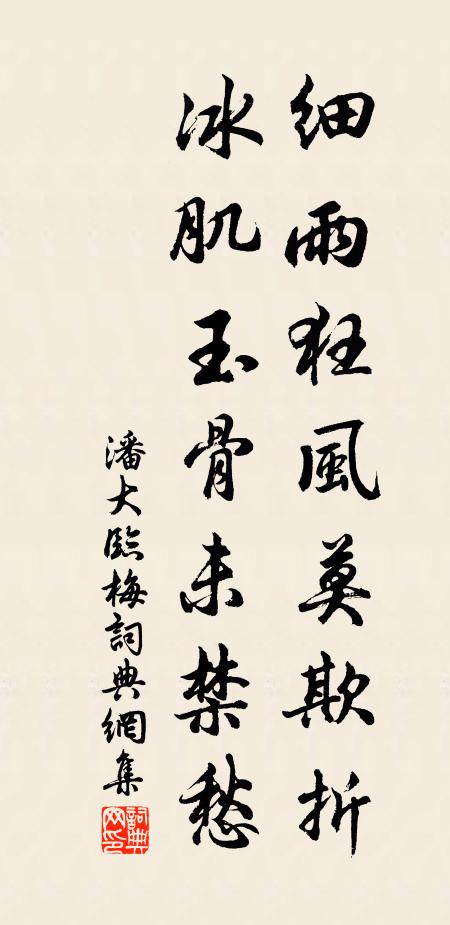 細雨狂風莫欺折
冰肌玉骨未禁愁
潘大臨梅詞典網集
詞典網印